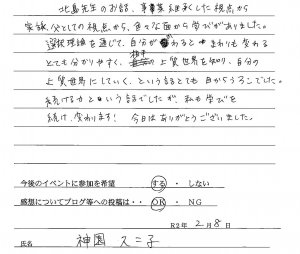 北島先生のお話、事業業を継承した視点から
実話、父としての視点から、色々な面から学びがありました。
選択理論を通じて、自分が変わると まわりも変わる
とても分かりやすく、相手の上質世界を知り、自分の
上質世界にしていく、という話とても目からうろこでした。
続ける力という話でしたが、私も学びを
続け、変わります! 今日はありがとうございました。
今後のイベントに参加を希望 する ・ しない
感想についてブログ等への投稿は・・ OK ・ NG
R2年 2月 8日
氏名 神園 スミ子